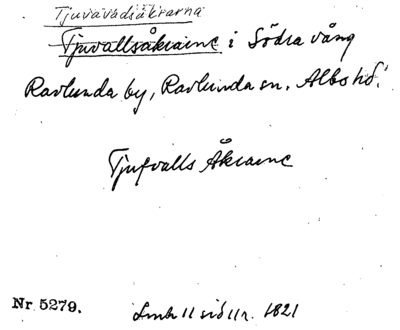 Tjuvavadsåkrarna
Tjuvallsåkrarne i Södra vång
Ravlunda by, Ravlunda sn. Albo hd.
Tjufvalls Åkrarne
Nr 5279.
Lmh 11 sid 11r. 1821